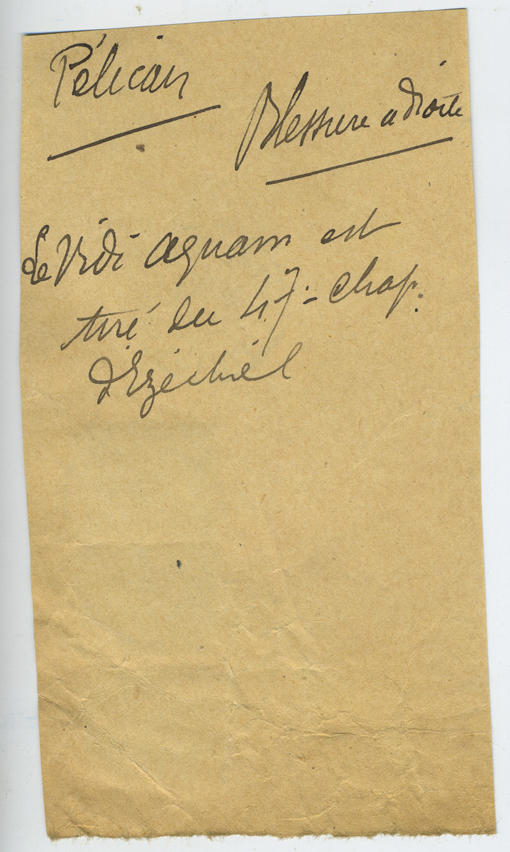 Pélican
Blessure a droite
Le Vidi aquam est
tiré du 47e chap.
d'Ezéchiel